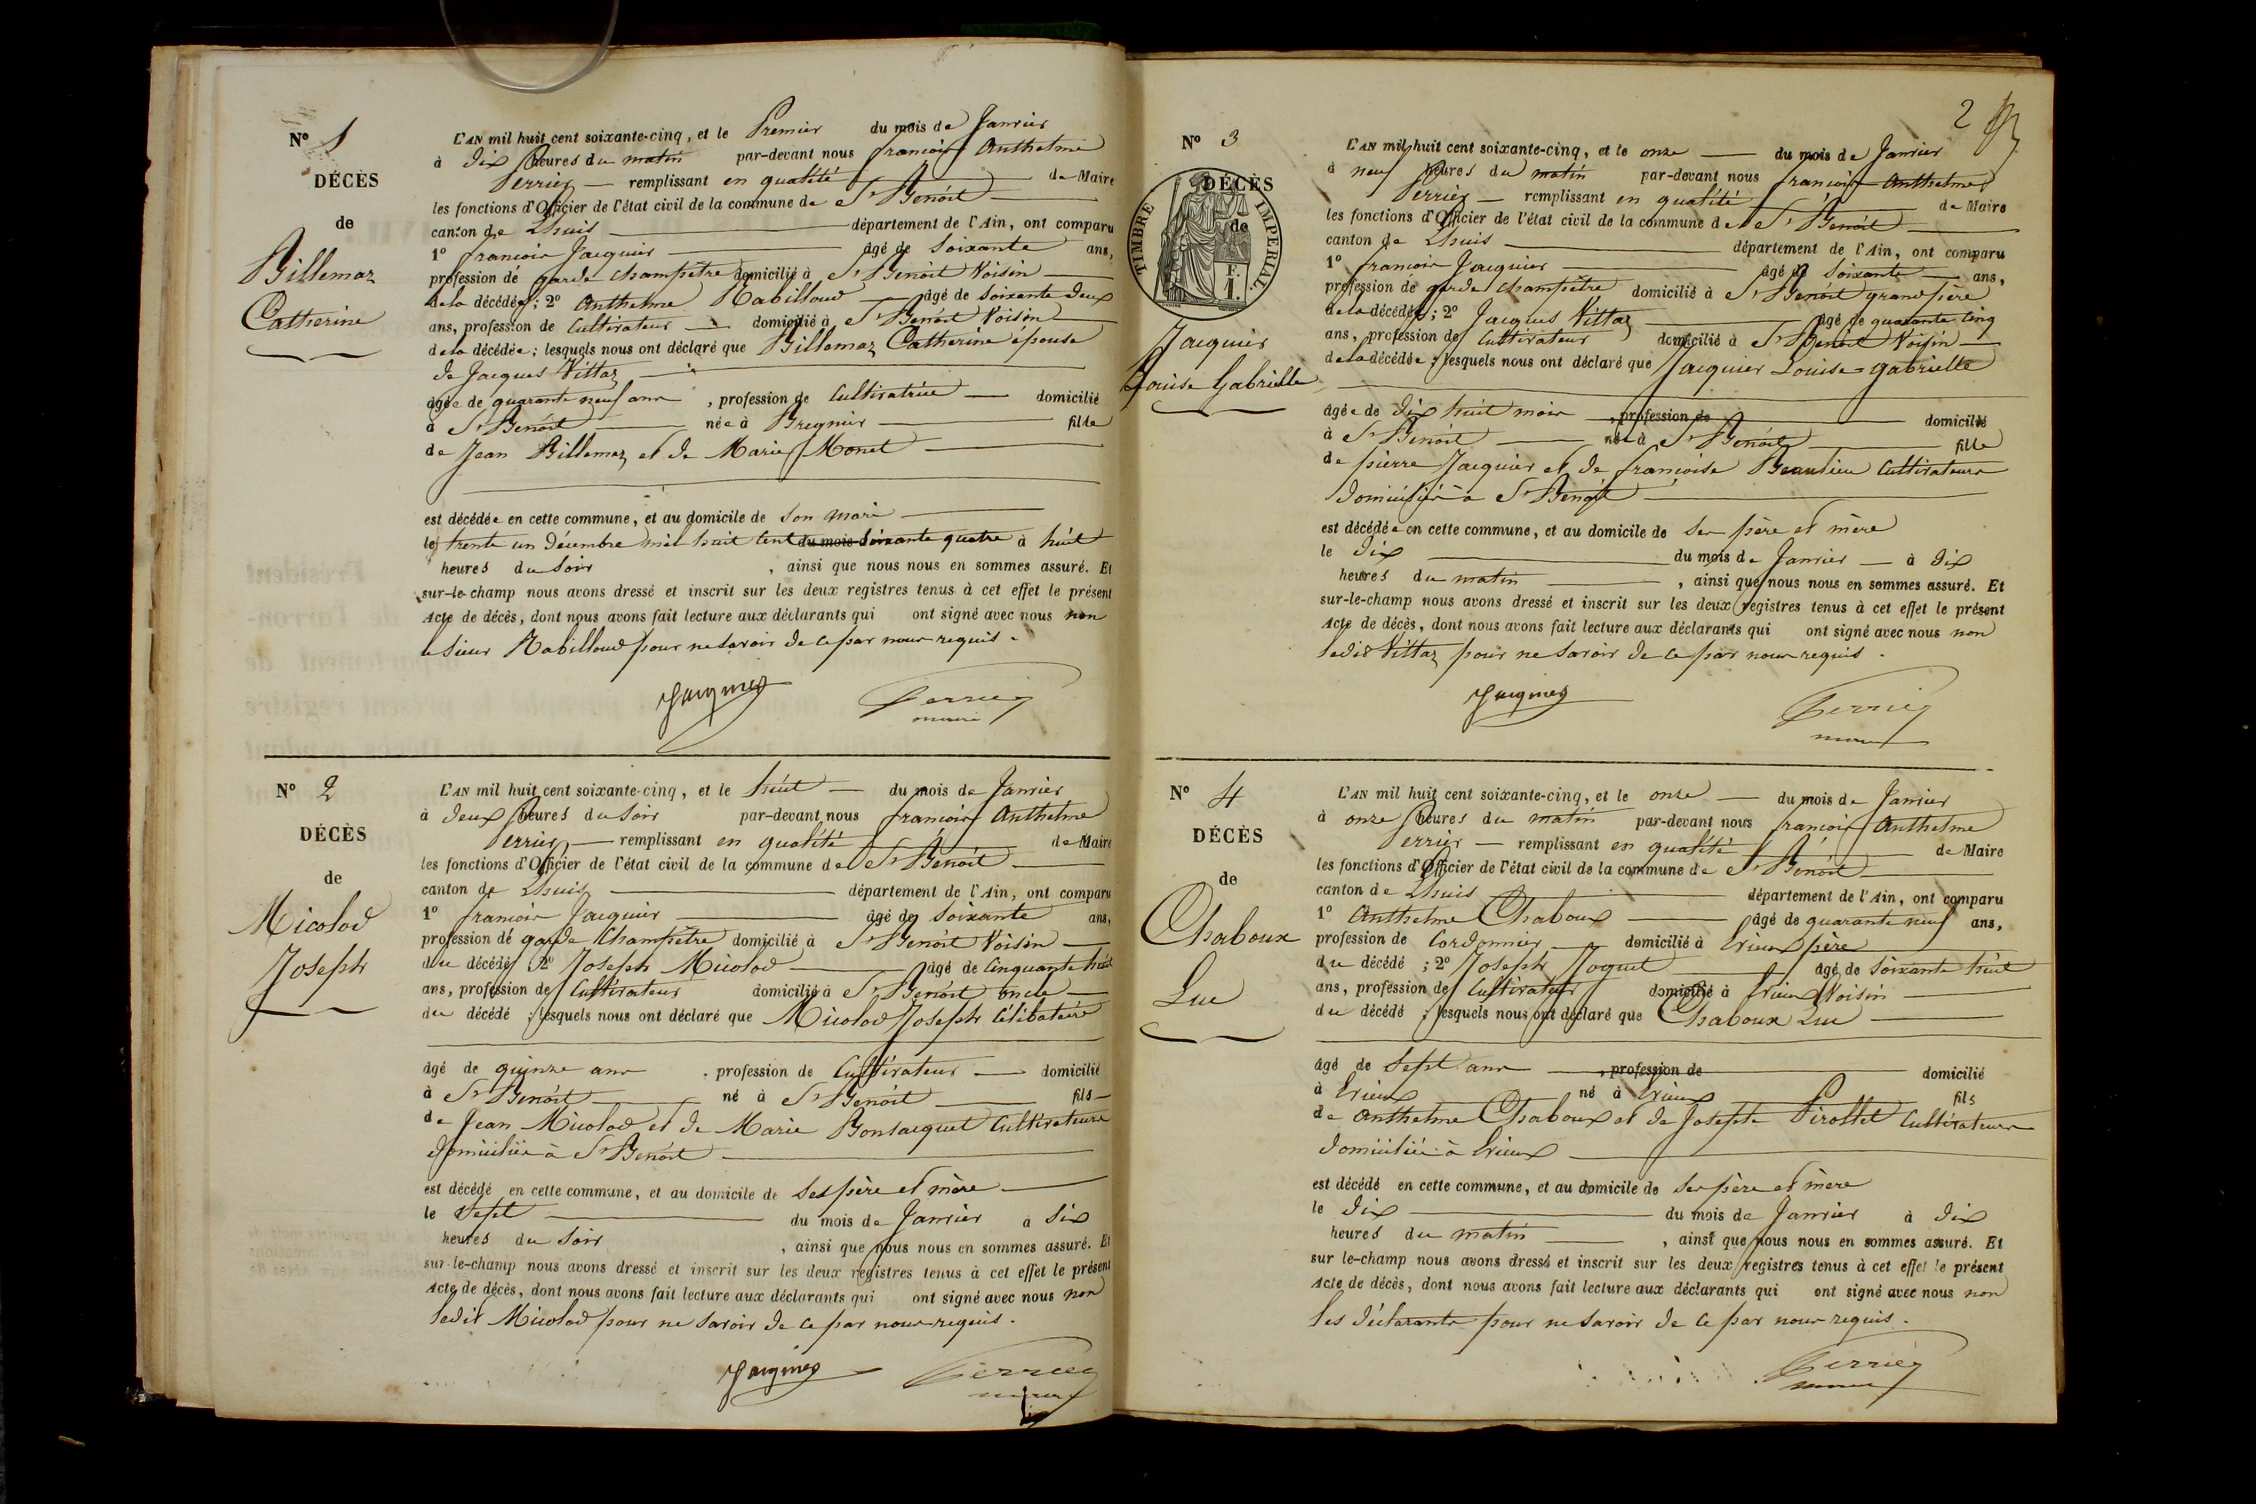 Nº 1
DÉCÈS
de
Billemaz
Catherine
L'AN mil huit cent soixante-cinq, et le Premier du mois de Janvier
à dix heures du matin par-devant nous françois Anthelme
Perrier remplissant en qualité de Maire
les fonctions d'Officier de l'état civil de la commune de St Benoit
canton de Lhuis département de l'Ain, ont comparu
1º françois Jacquier âgé de soixante ans,
profession de garde champêtre domicilié à St Benoit Voisin
de la décédée; 2º Anthelme Rabilloud âgé de soixante deux
ans, profession de Cultivateur domicilié à St Benoit Voisin
de la décédée; lesquels nous ont déclaré que Billemaz Catherine épouse
de Jacques Vittaz
âgée de quarante neuf ans, profession de Cultivatrice domicilié
à St Benoit née à Bregnier fille
de Jean Billemaz et de Marie Monet
est décédée en cette commune, et au domicile de son mari
le trente un Décembre mil huit cent du mois soixante quatre à huit
heures du soir, ainsi que nous nous en sommes assuré. Et
sur-le-champ nous avons dressé et inscrit sur les deux registres tenus à cet effet le présent
Acte de décès, dont nous avons fait lecture aux déclarants qui ont signé avec nous non
le sieur Rabilloud pour ne savoir de ce par nous requis.
Jacquier Perrier
maire
Nº 2
DÉCÈS
de
Micolod
Joseph
L'AN mil huit cent soixante-cinq, et le huit du mois de Janvier
à deux heures du soir par-devant nous françois Anthelme
Perrier remplissant en qualité de Maire
les fonctions d'Officier de l'état civil de la commune de St Benoit
canton de Lhuis département de l'Ain, ont comparu
1º françois Jacquier âgé de soixante ans,
profession de garde champêtre domicilié à St Benoit Voisin
du décédé; 2º Joseph Micolod âgé de cinquante huit
ans, profession de Cultivateur domicilié à St Benoit oncle
du décédé; lesquels nous ont déclaré que Micolod Joseph Célibataire
âgé de quinze ans, profession de Cultivateur domicilié
à St Benoit né à St Benoit fils
de Jean Micolod et de Marie Bonlacquet Cultivateurs
domiciliés à St Benoit
est décédé en cette commune, et au domicile de ses père et mère
le Sept du mois de Janvier à six
heures du soir, ainsi que nous nous en sommes assuré. Et
sur-le-champ nous avons dressé et inscrit sur les deux registres tenus à cet effet le présent
Acte de décès, dont nous avons fait lecture aux déclarants qui ont signé avec nous non
ledit Micolod pour ne savoir de ce par nous requis.
Jacquier Perrier
maire
2
Nº 3
DÉCÈS
de
TIMBRE IMPERIAL
F.
1.
Jacquier
Louise Gabrielle
L'AN mil huit cent soixante-cinq, et le onze du mois de Janvier
à neuf heures du matin par-devant nous françois Anthelme
Perrier remplissant en qualité de Maire
les fonctions d'Officier de l'état civil de la commune de St Benoit
canton de Lhuis département de l'Ain, ont comparu
1º françois Jacquier âgé de soixante ans,
profession de garde champêtre domicilié à St Benoit grand père
de la décédée; 2º Jacques Vittaz âgé de quarante cinq
ans, profession de Cultivateur domicilié à St Benoit Voisin
de la décédée; lesquels nous ont déclaré que Jacquier Louise-Gabrielle
âgée de dix huit mois, profession de domicilié
à St Benoit née à St Benoit fille
de pierre Jacquier et de françoise Beaulieu Cultivateurs
domiciliés à St Benoit
est décédée en cette commune, et au domicile de ses père et mère
le dix du mois de Janvier à dix
heures du matin, ainsi que nous nous en sommes assuré. Et
sur-le-champ nous avons dressé et inscrit sur les deux registres tenus à cet effet le présent
Acte de décès, dont nous avons fait lecture aux déclarants qui ont signé avec nous non
ledit Vittaz pour ne savoir de ce par nous requis.
Jacquier Perrier
maire
Nº 4
DÉCÈS
de
Chaboux
Luc
L'AN mil huit cent soixante-cinq, et le onze du mois de Janvier
à onze heures du matin par-devant nous françois Anthelme
Perrier remplissant en qualité de Maire
les fonctions d'Officier de l'état civil de la commune de St Benoit
canton de Lhuis département de l'Ain, ont comparu
1º Anthelme Chaboux âgé de quarante neuf ans,
profession de Cordonnier domicilié à Erieux père
du décédé; 2º Joseph Joguet âgé de soixante huit
ans, profession de Cultivateur domicilié à Erieux Voisin
du décédé; lesquels nous ont déclaré que Chaboux Luc
âgé de Sept ans, profession de domicilié
à Erieux né à Erieux fils
de Anthelme Chaboux et de Josephte Pirollet Cultivateurs
domiciliés à Erieux
est décédé en cette commune, et au domicile de ses père et mère
le dix du mois de Janvier à dix
heures du matin, ainsi que nous nous en sommes assuré. Et
sur le-champ nous avons dressé et inscrit sur les deux registres tenus à cet effet le présent
Acte de décès, dont nous avons fait lecture aux déclarants qui ont signé avec nous non
les déclarants pour ne savoir de ce par nous requis.
Perrier
maire